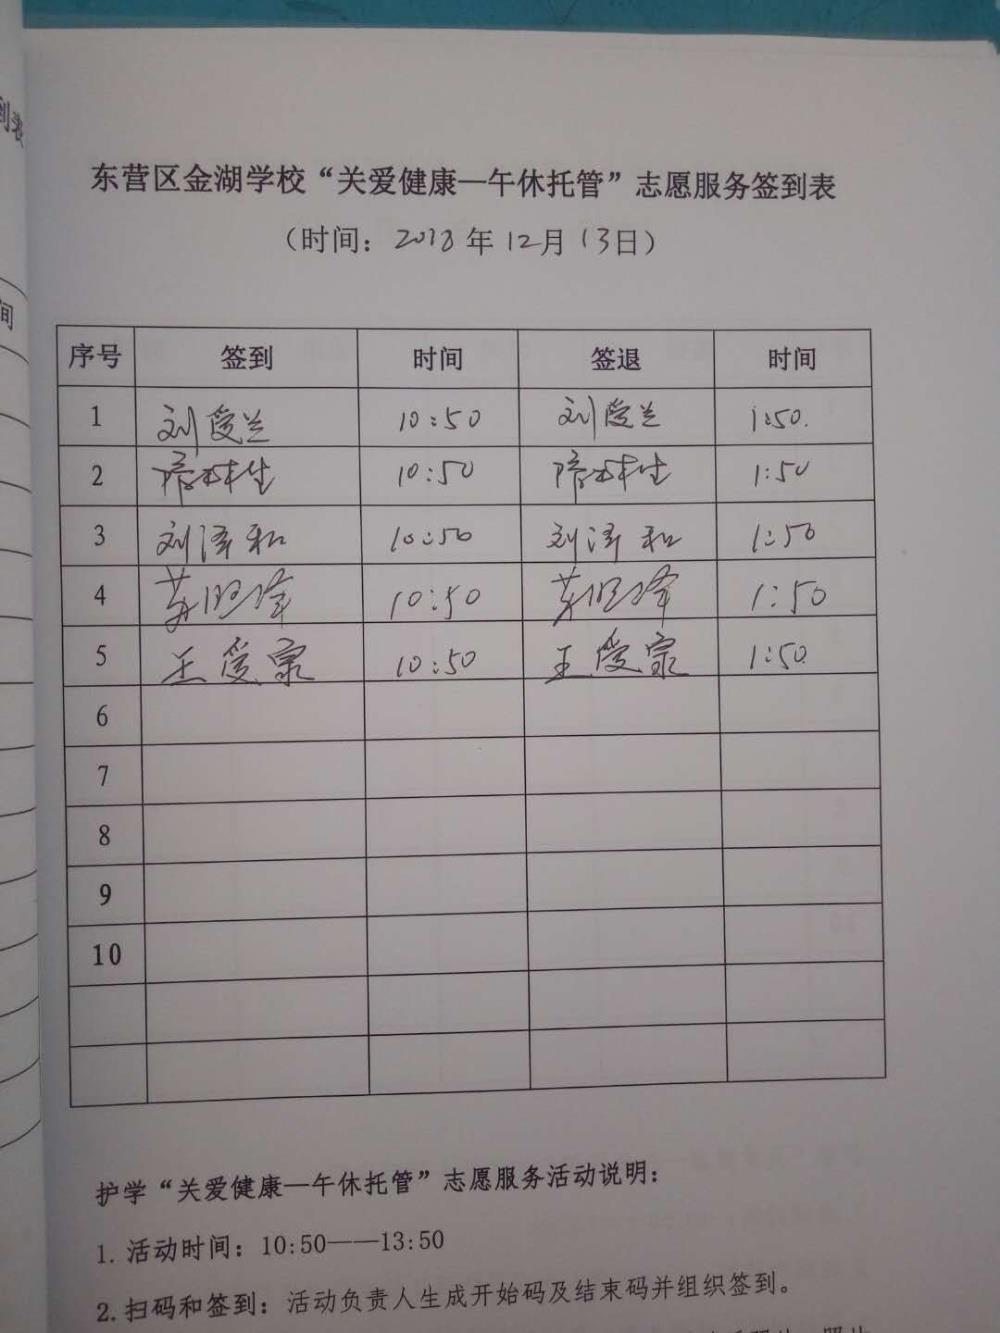 到表
东营区金湖学校“关爱健康—午休托管”志愿服务签到表
（时间：2018年12月13日）
间
序号 签到 时间 签退 时间
1 刘爱兰 10:50 刘爱兰 1:50.
2 10:50 1:50
3 刘泽和 10:50 刘泽和 1:50
4 10:50 1:50
5 王爱家 10:50 王爱家 1:50
6
7
8
9
10
护学“关爱健康—午休托管”志愿服务活动说明：
1. 活动时间：10:50——13:50
2. 扫码和签到：活动负责人生成开始码及结束码并组织签到。